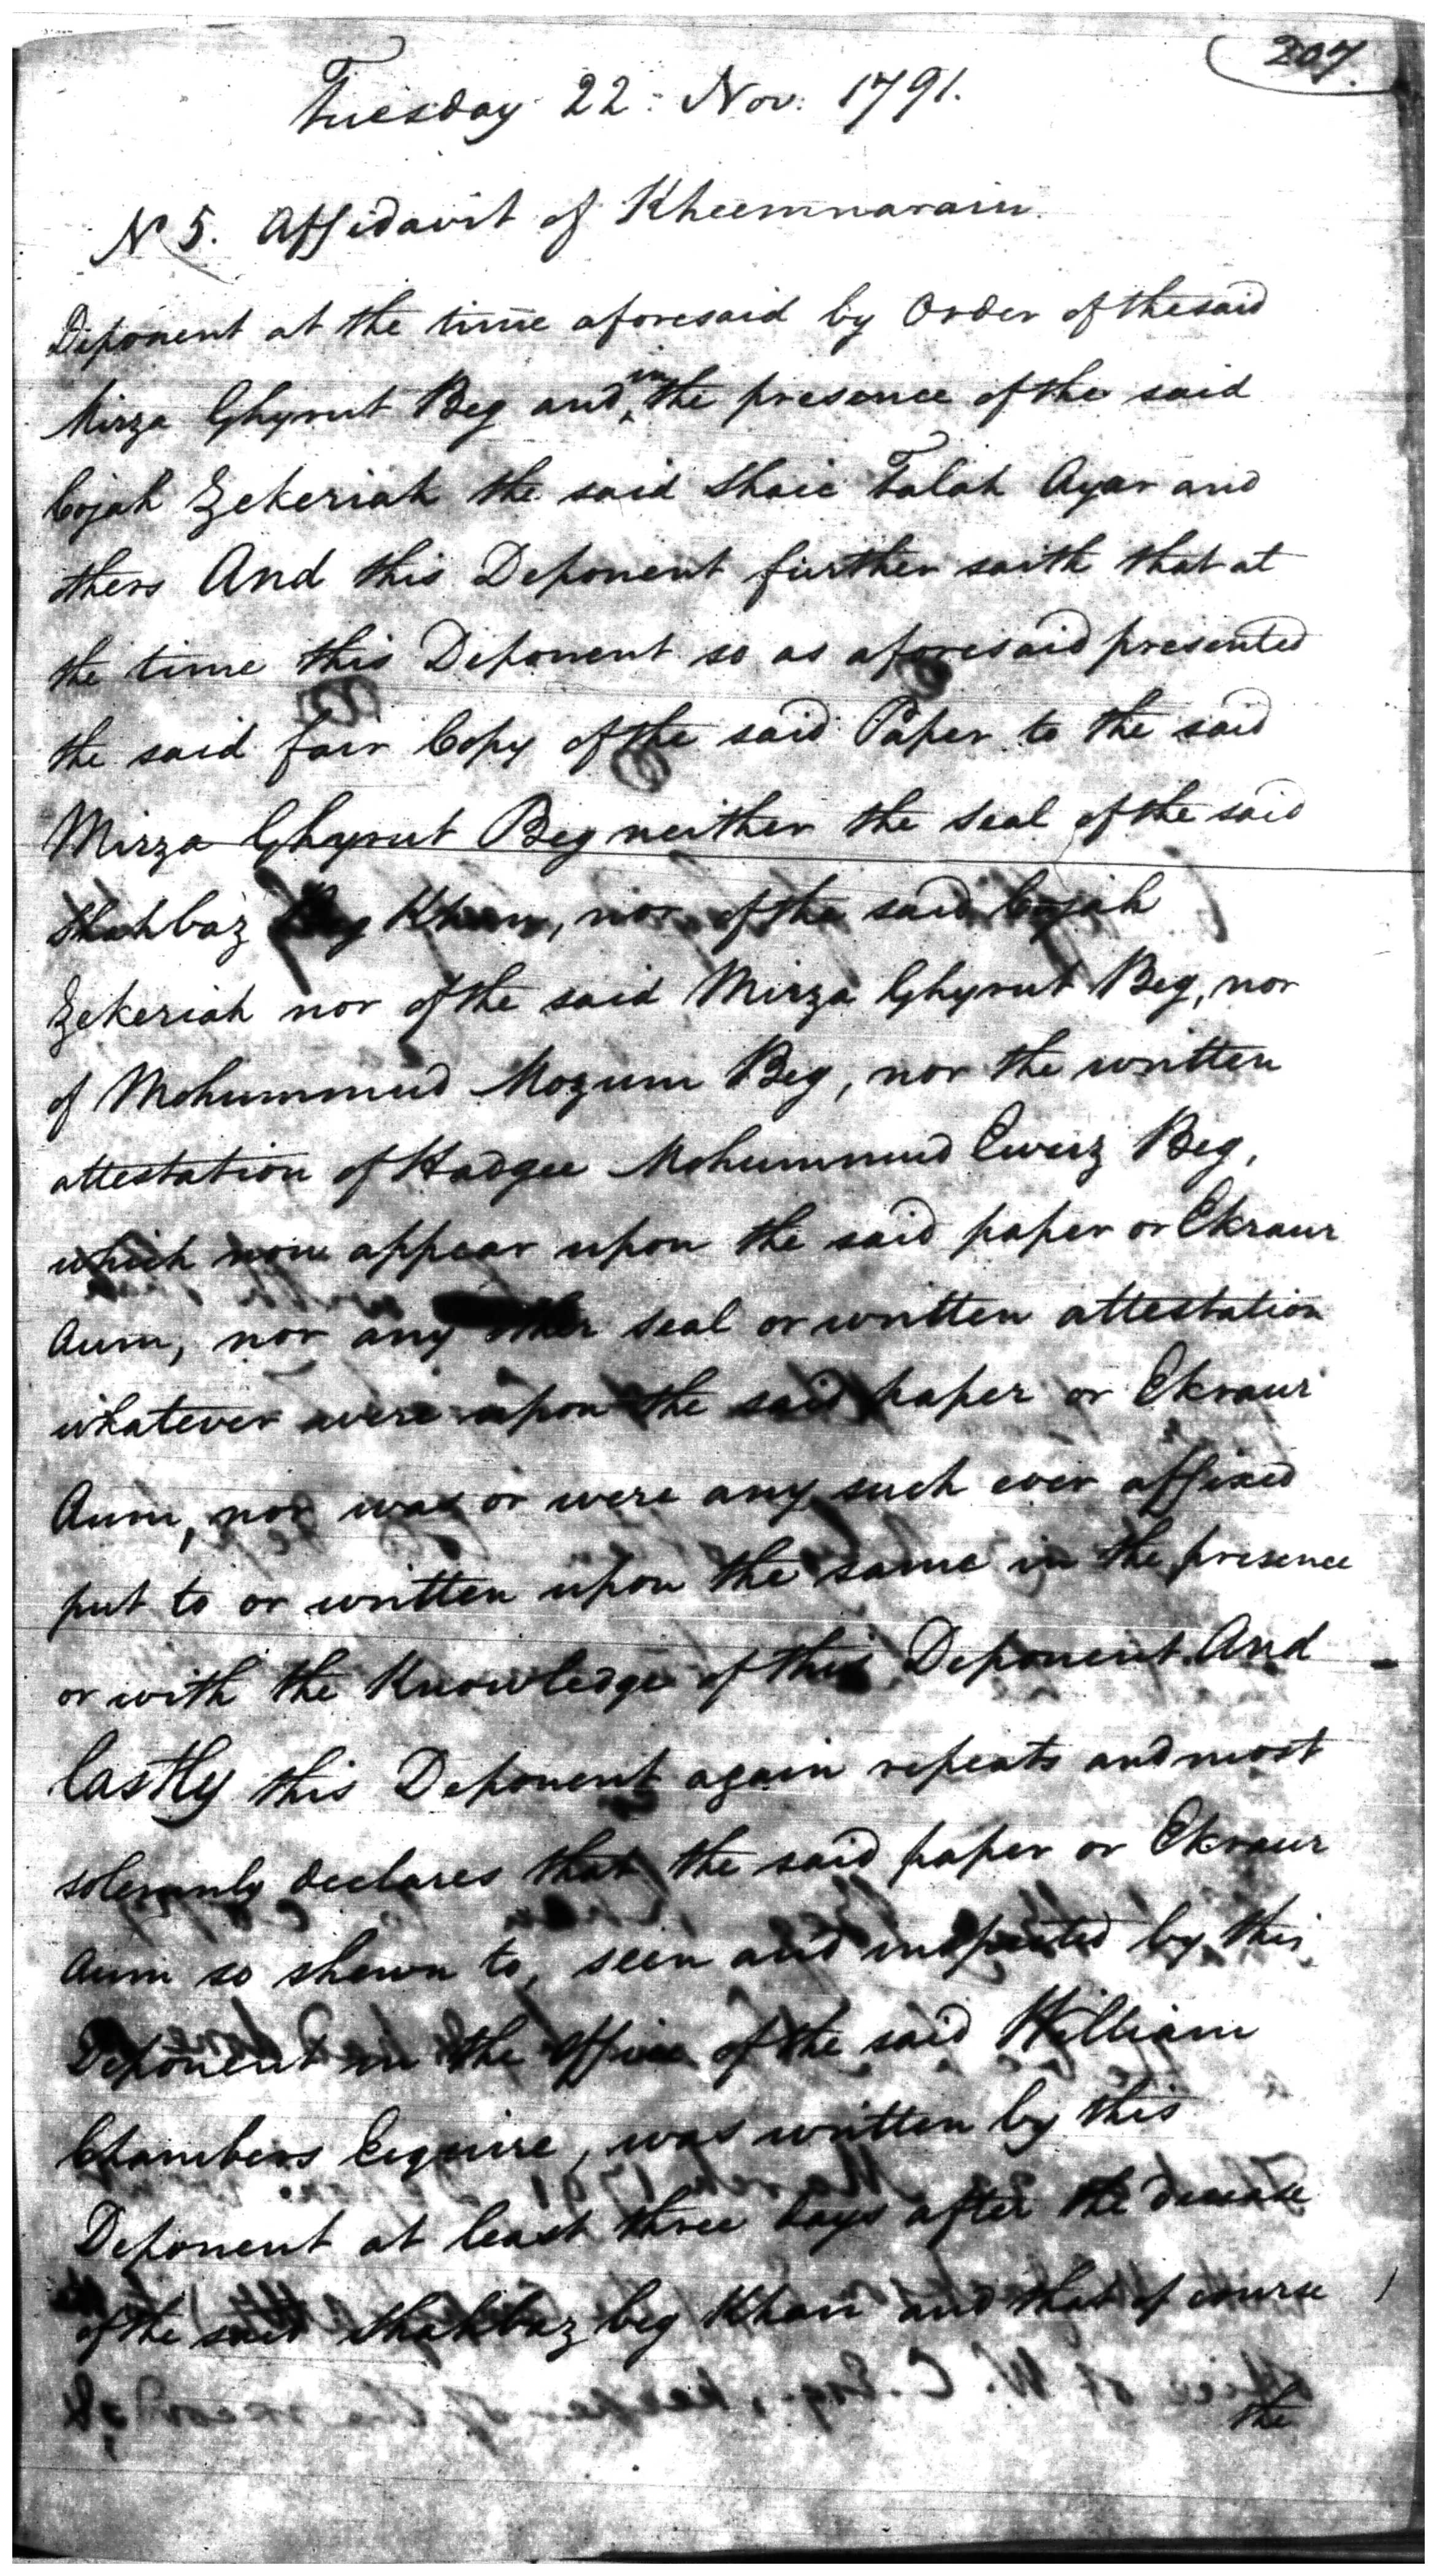 207.
Tuesday 22: Nov: 1791.
No 5. Affidavit of Kheemnarain.
Deponent at the time aforesaid by Order of the said
Mirza Ghyrut Beg and in the presence of the said
Cojah Zekeriah the said Shaic Talah Ayar and
others And this Deponent further saith that at
the time this Deponent so as aforesaid presented
the said fair Copy of the said Paper to the said
Mirza Ghyrut Beg neither the Seal of the said
Shahbaz Beg Khan, nor of the said Cojah
Zekeriah nor of the said Mirza Ghyrut Beg, nor
of Mohummud Mozum Beg, nor the written
attestation of Hadgee Mohummud Ewuz Beg,
which now appear upon the said paper or Ekraur
Aum, nor any other seal or written attestation
whatever were upon the said paper or Ekraur
Aum, nor was or were any such ever affixed
put to or written upon the same in the presence
or with the Knowledge of this Deponent And
lastly this Deponent again repeats and most
solemnly declares that the said paper or Ekraur
Aum so shewn to, seen and inspected by this
Deponent in the Office of the said William
Chambers Esquire, was written by this
Deponent at least three days after the decease
of the said Shahbaz beg Khan and that of course
the